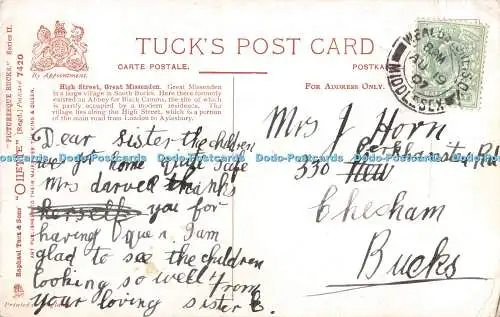 TUCK'S POST CARD
By Appointment.
CARTE POSTALE.
POSTKA
"PICTURESQUE BUCKS." Series II.
"OILETTE" [Regd.] Postcard 7420
ART PUBLISHERS TO THEIR MAJESTIES THE KING & QUEEN.
Raphael Tuck & Sons'
Printed in
High Street, Great Missenden. Great Missenden
is a large village in South Bucks. Here there formerly
existed an Abbey for Black Canons, the site of which
is partly occupied by a modern residence. The
village lies along the High Street, which is a portion
of the main road from London to Aylesbury.
FOR ADDRESS ONLY.
WEALDS
MIDDLESEX
Dear sister the children
we got home quite safe
Mrs darvell thanks
herself you for
having 
I am
glad to see the children
looking so well from
your loving sister
Mrs J Horn
330
Chesham
Bucks
Dodo-Postcards Dodo-Postcards Dodo-Postcards Dodo-Postcards Dodo-Postcards